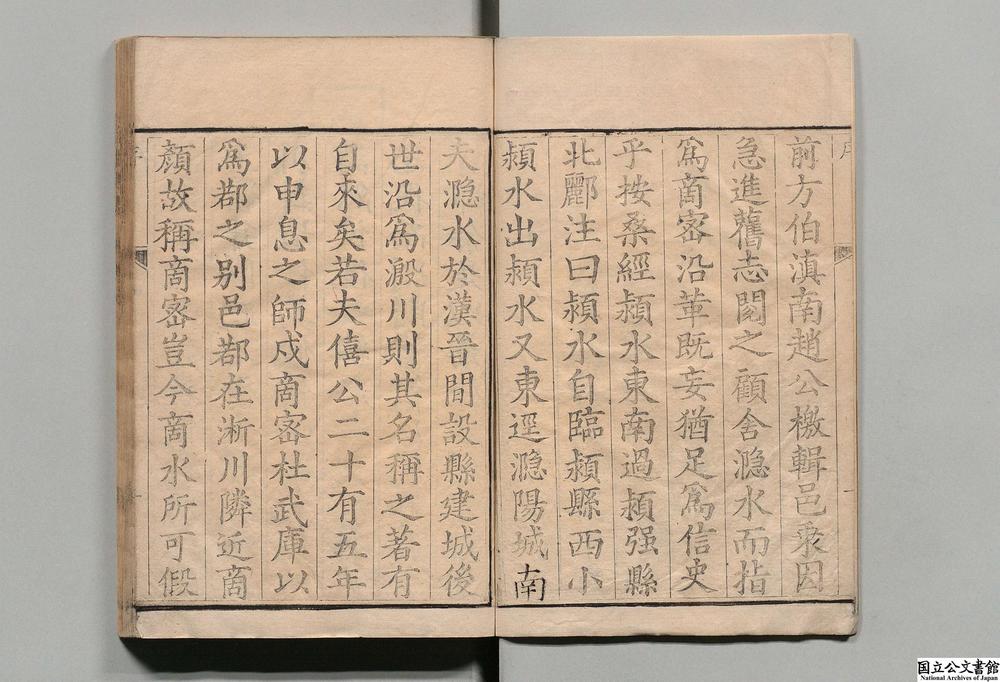 序
前方伯滇南趙公檄輯邑乘因
急進舊志閱之顧舍㶏水而指
爲商密沿革既妄猶足爲信史
乎按桑經潁水東南過潁强縣
北酈注曰潁水自臨潁縣西小
潁水出潁水又東逕㶏陽城南
夫㶏水於漢晉間設縣建城後
世沿爲溵川則其名稱之著有
自來矣若夫僖公二十有五年
以申息之師戍商密杜武庫以
爲鄀之别邑鄀在淅川隣近商
顏故稱商密豈今商水所可假
国立公文書館
National Archives of Japan